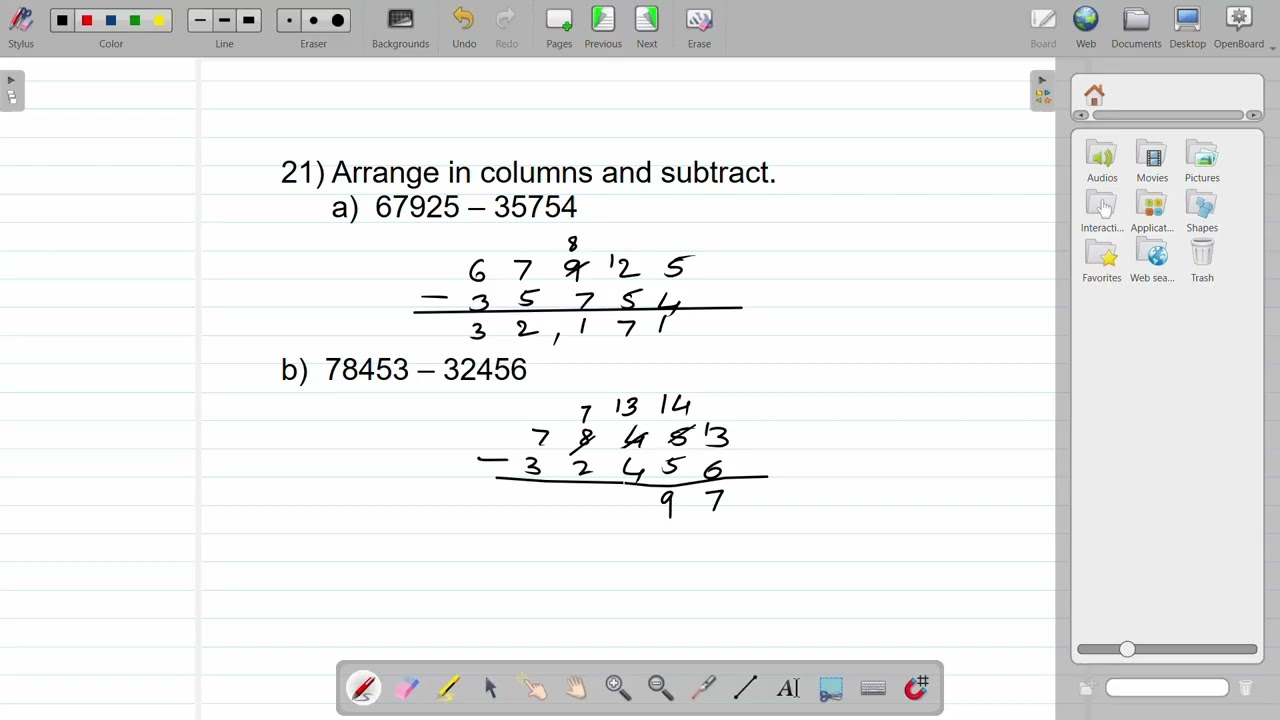 Stylus Color Line Eraser Backgrounds Undo Redo Pages Previous Next Erase Board Web Documents Desktop OpenBoard
21) Arrange in columns and subtract.
a) 67925 – 35754
8
6 7 9 12 5
– 3 5 7 5 4
3 2 , 1 7 1
b) 78453 – 32456
7 13 14
7 8 4 5 13
– 3 2 4 5 6
9 7
Audios Movies Pictures
Interacti... Applicat... Shapes
Favorites Web sea... Trash